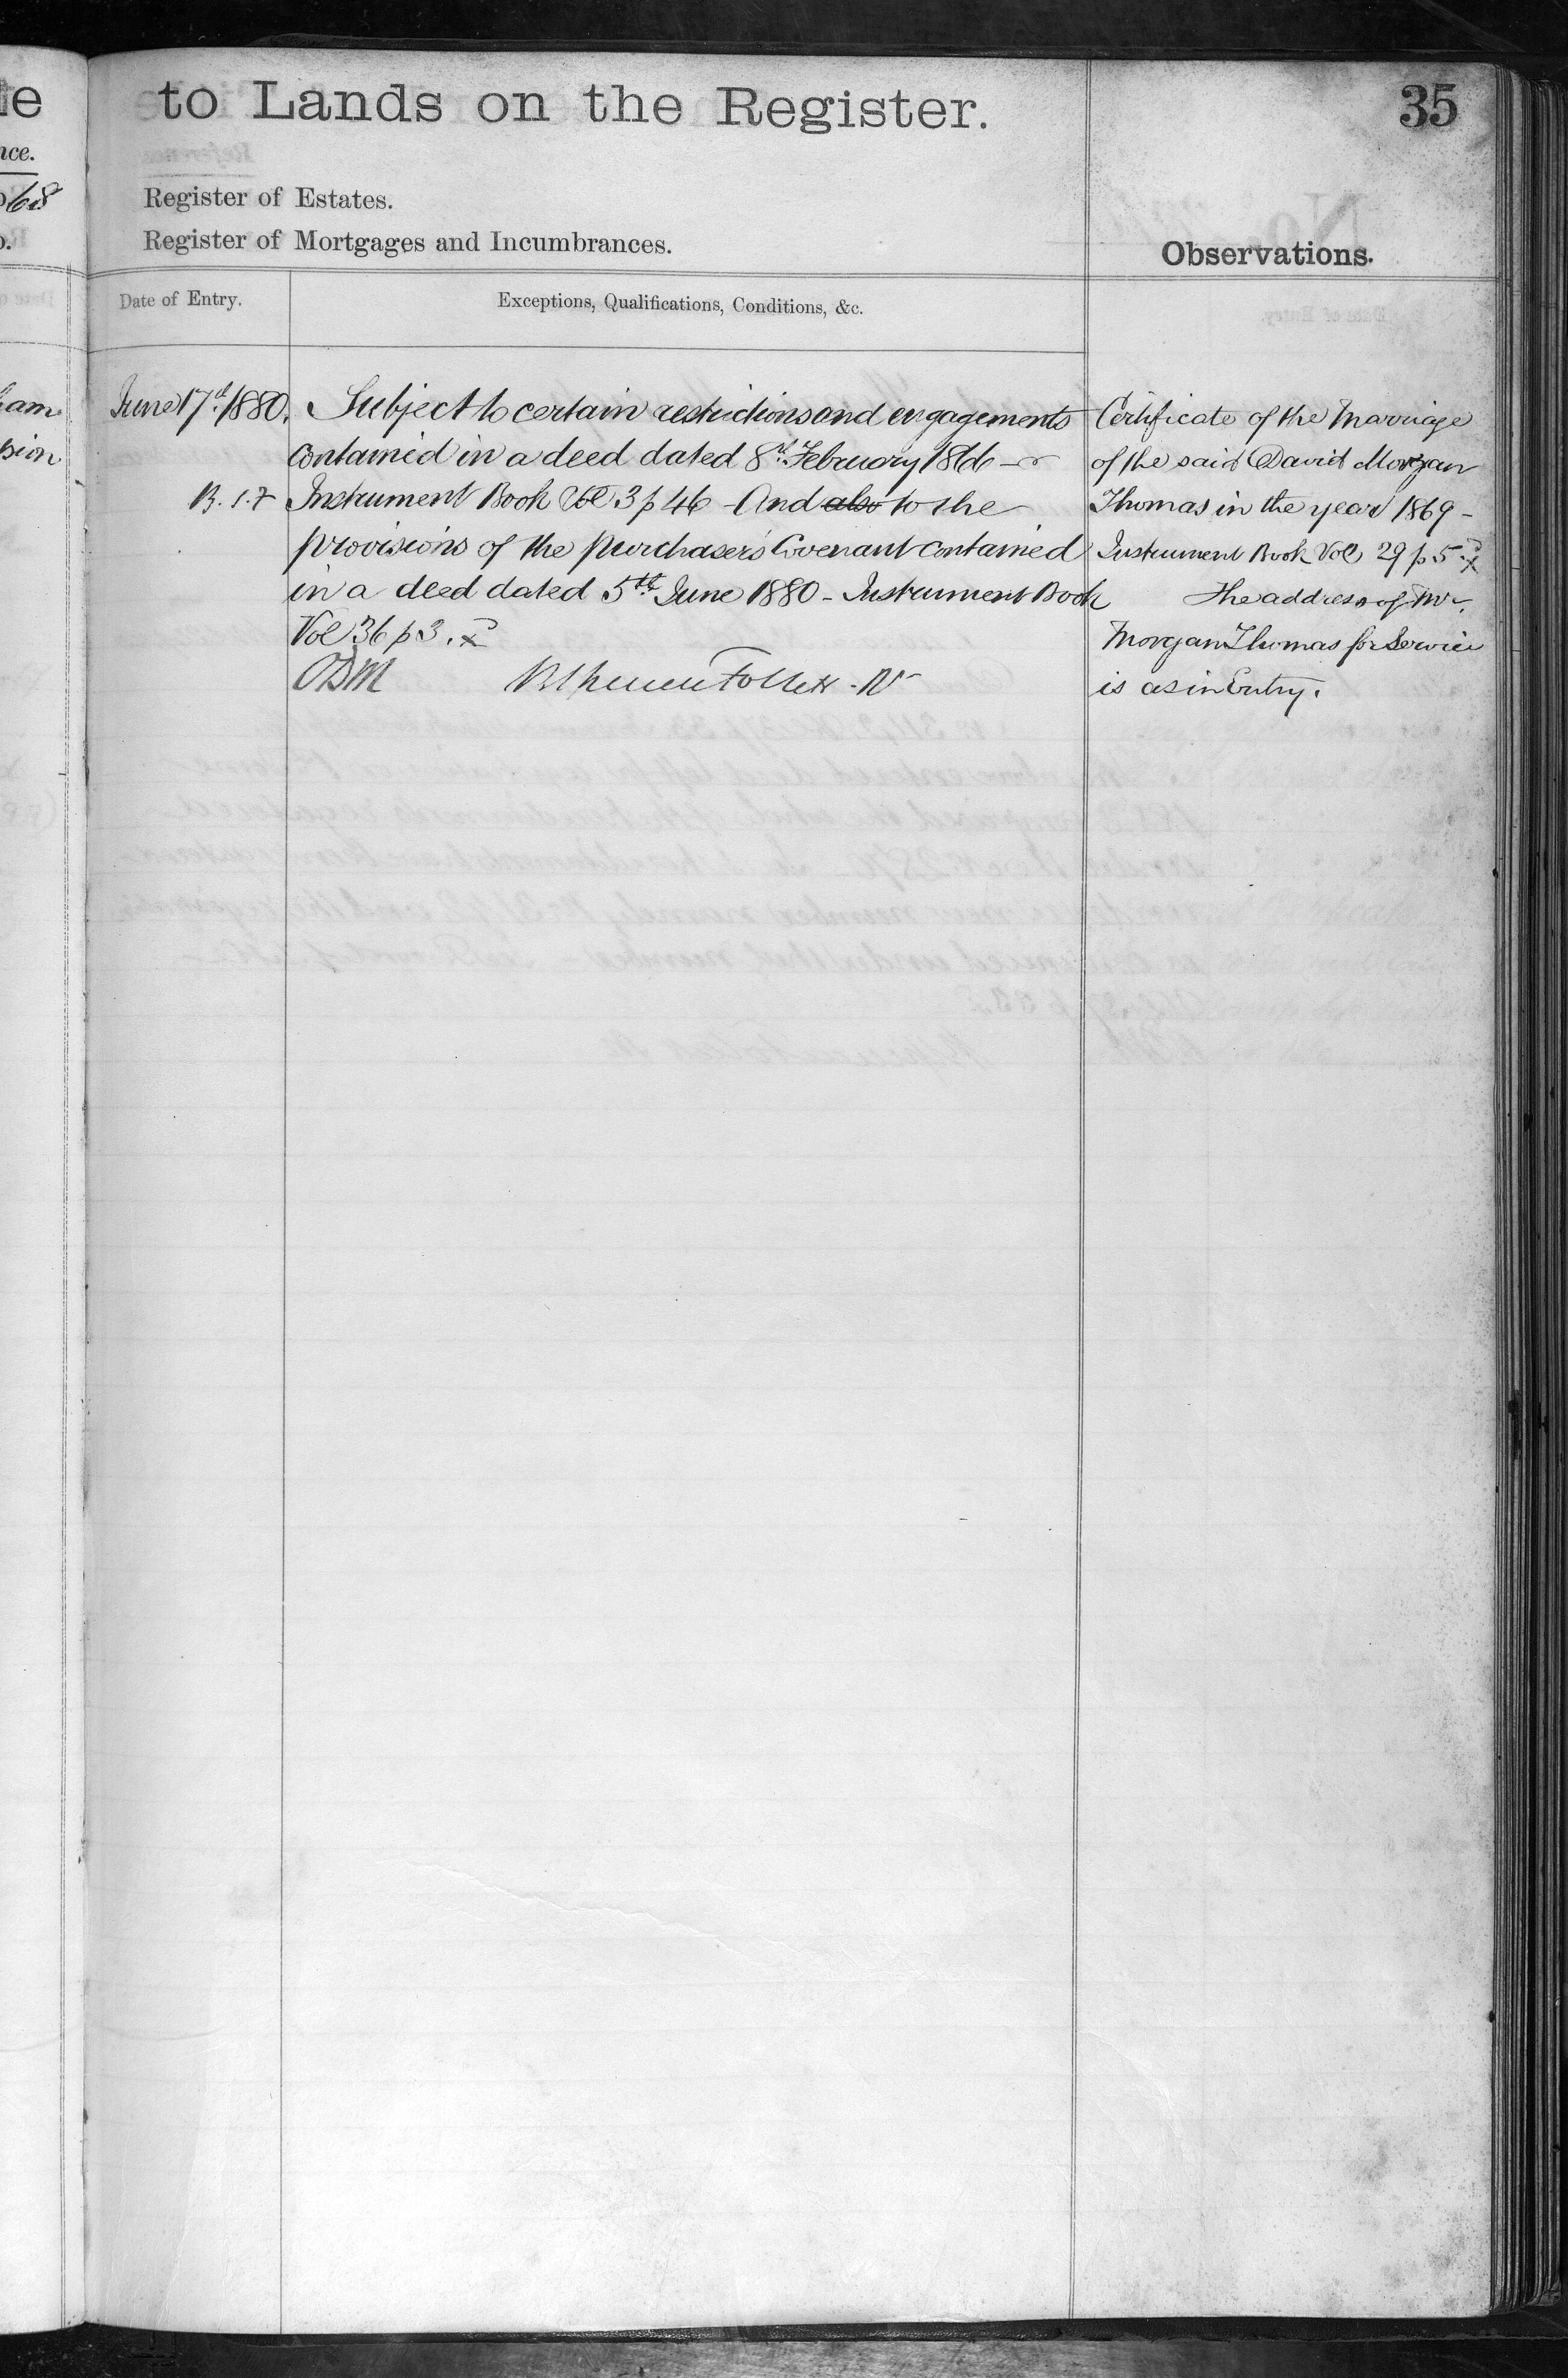 le
to Lands on the Register.
35
nce.
68
Register of Estates.
Register of Mortgages and Incumbrances.
Observations.
Date of Entry.
Exceptions, Qualifications, Conditions, &c.
June 17th 1880.
Subject to certain restrictions and engagements
contained in a deed dated 8th February 1866 -
B. 1.7
Instrument Book Vol 3 p 46 - And also to the
provisions of the purchasers Covenant contained
in a deed dated 5th June 1880 - Instrument Book
Vol 36 p 3.
Follett - R
Certificate of the Marriage
of the said David Morgan
Thomas in the year 1869 -
Instrument Book Vol 29 p 5.
The address of Mr.
Morgan Thomas for Service
is as in Entry.
ham
sion